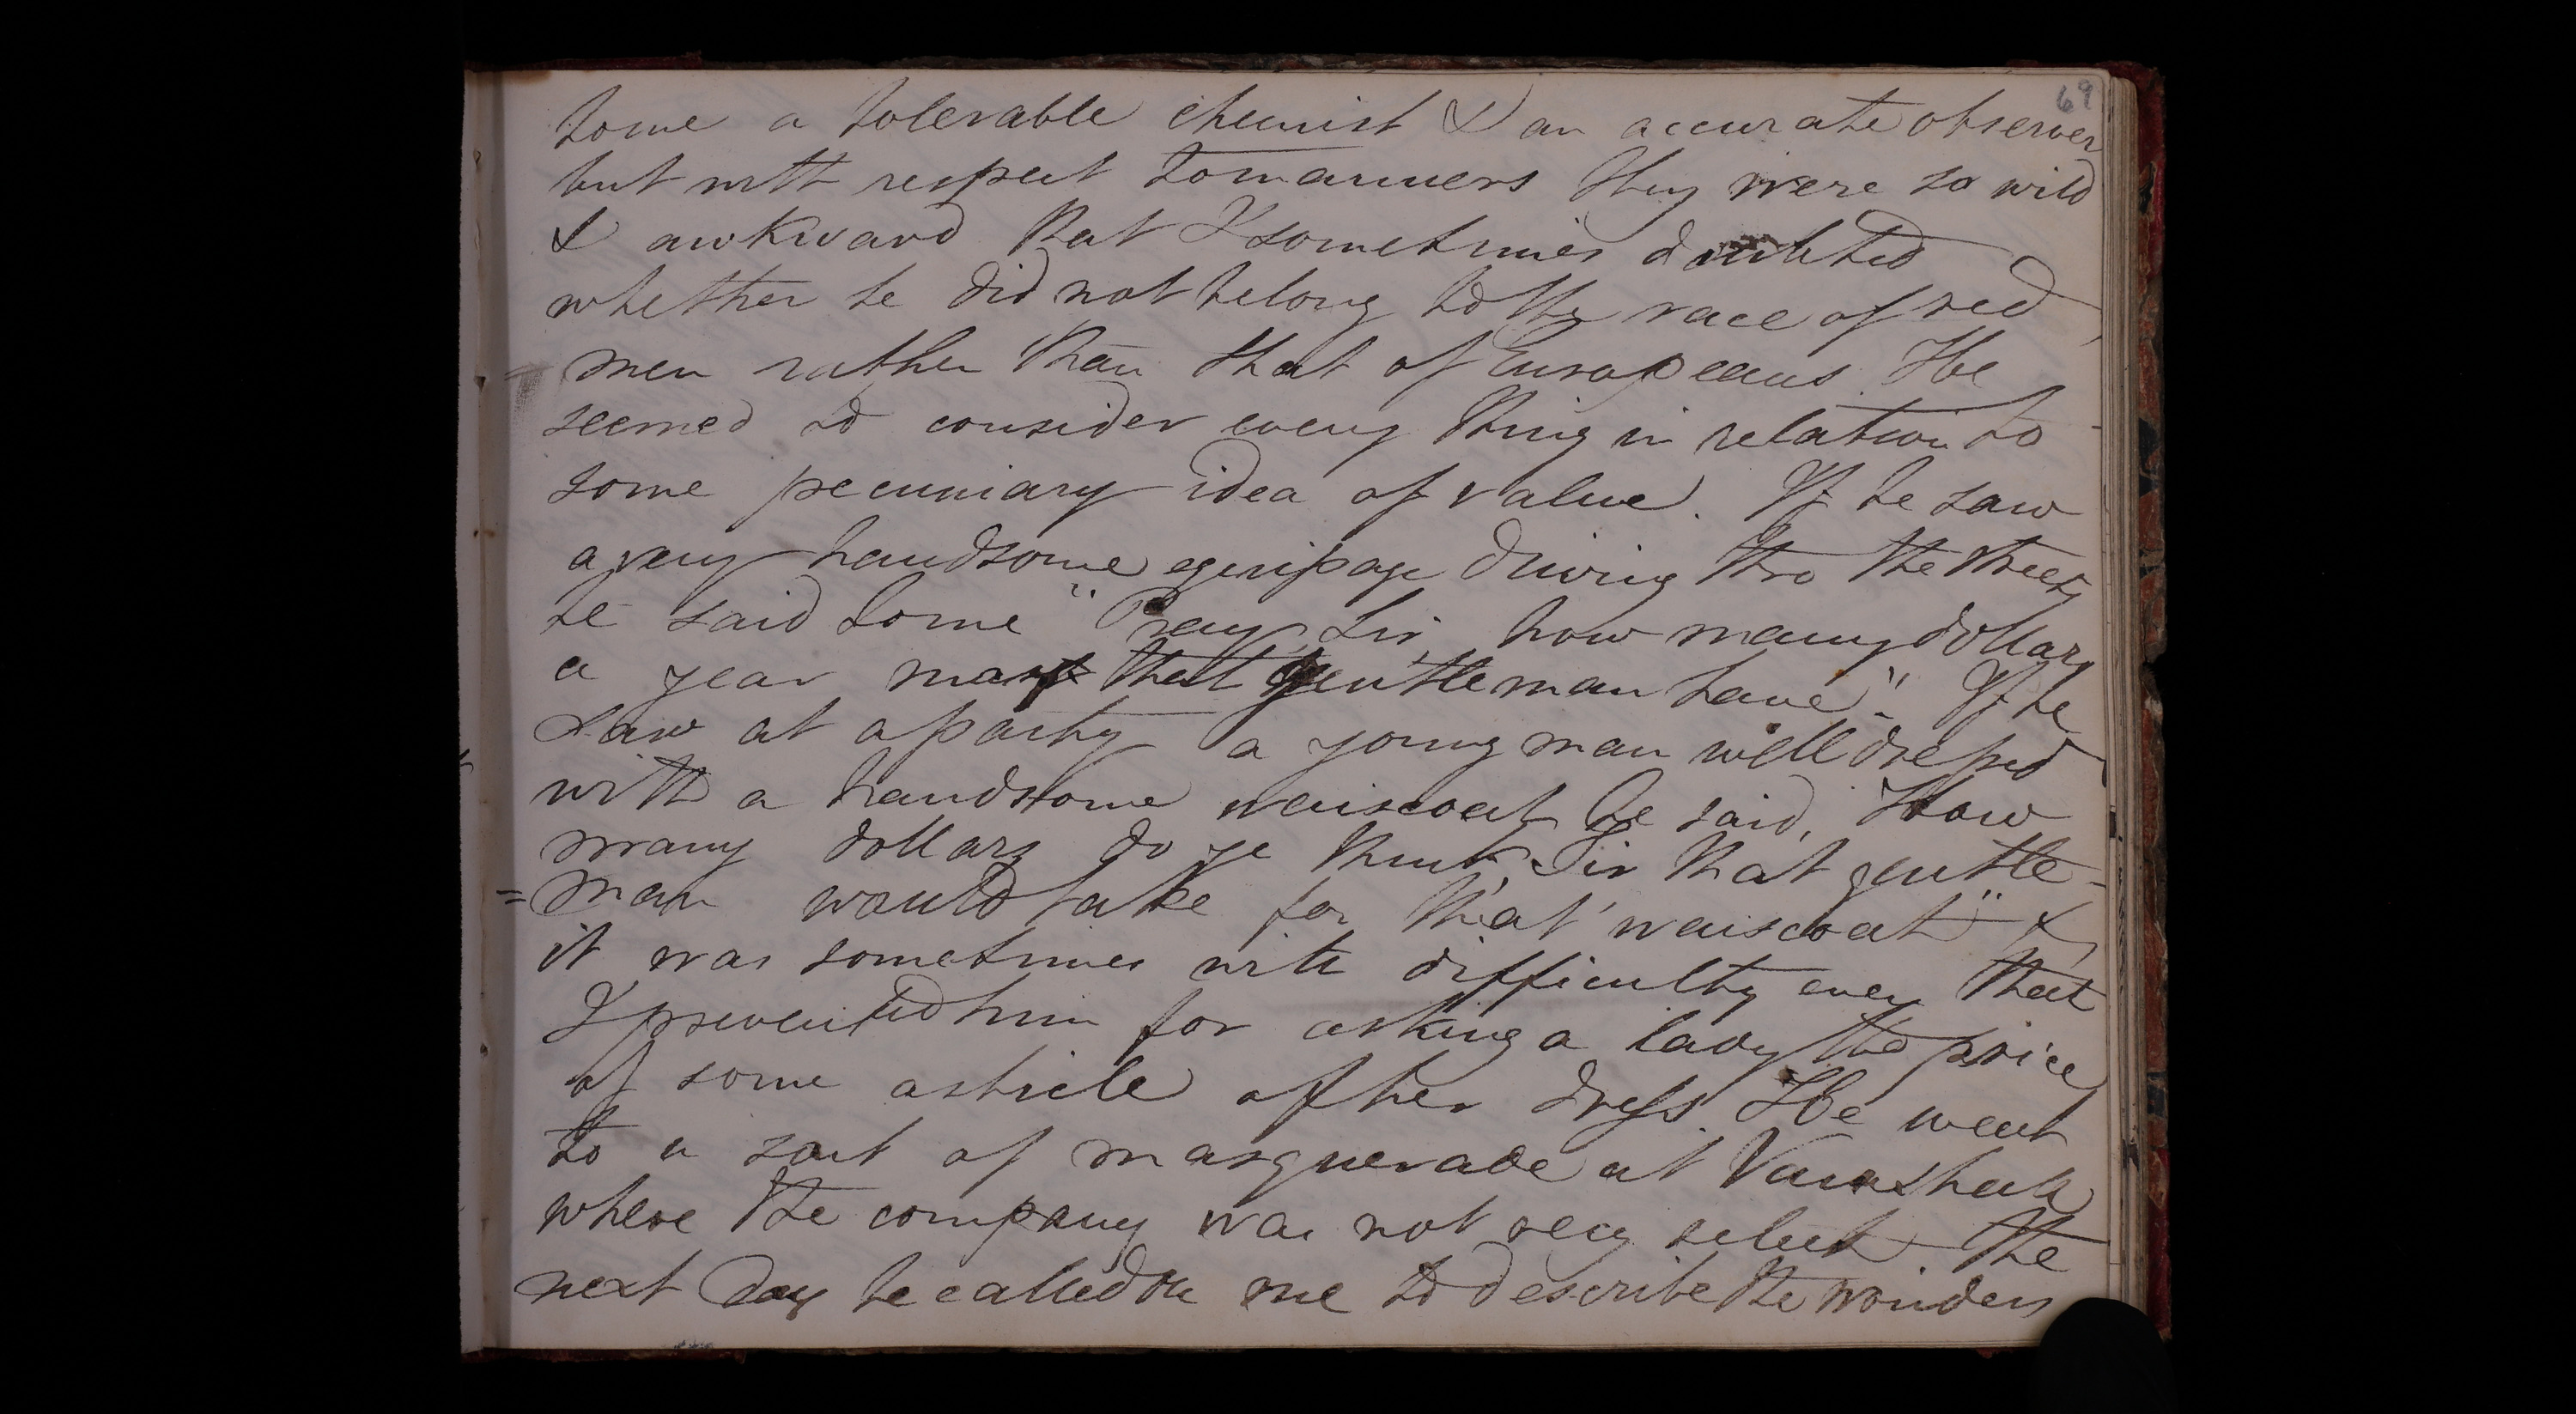 69
to me a tolerable chemist & an accurate observer
but with respect to manners they were so wild
& awkward that I sometimes doubted
whether he did not belong to the race of red
men rather than that of Europeans. He
seemed to consider every thing in relation to
some pecuniary idea of value. If he saw
a very handsome equipage driving thro the streets
he said to me "Pray, Sir, how many dollars
a year may that gentleman have". If he
saw at a party a young man well dressed
with a handsome waiscoat he said, How
many dollars do ye think, Sir that gentle-
= man would take for that waiscoat" &
it was sometimes with difficulty even that
I prevented him for asking a lady the price
of some article of her dress. He went
to a sort of masquerade at Vauxhall
where the company was not very select. The
next day he called on me to describe the wonders